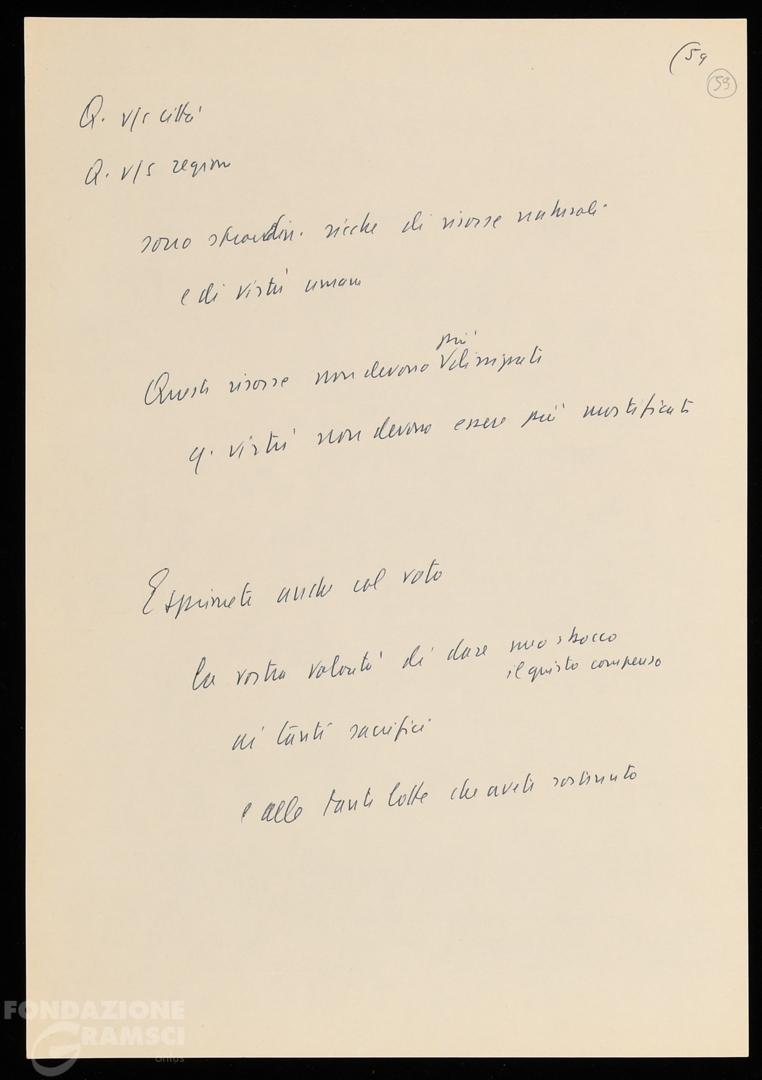 (59
59
Q. v/s città
Q. v/s regione
sono straordin. ricche di risorse naturali
e di virtù umane
Queste risorse non devono più dissipati
q. virtù non devono essere più mortificate
Esprimete anche col voto
la vostra volontà di dare uno sbocco
il giusto compenso
ai tanti sacrifici
e alle tante lotte che avete sostenuto
FONDAZIONE
GRAMSCI
onlus